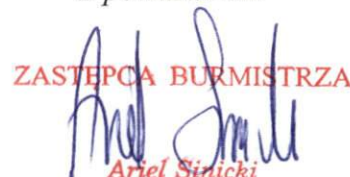 ZASTĘPCA BURMISTRZA
Ariel Sinicki